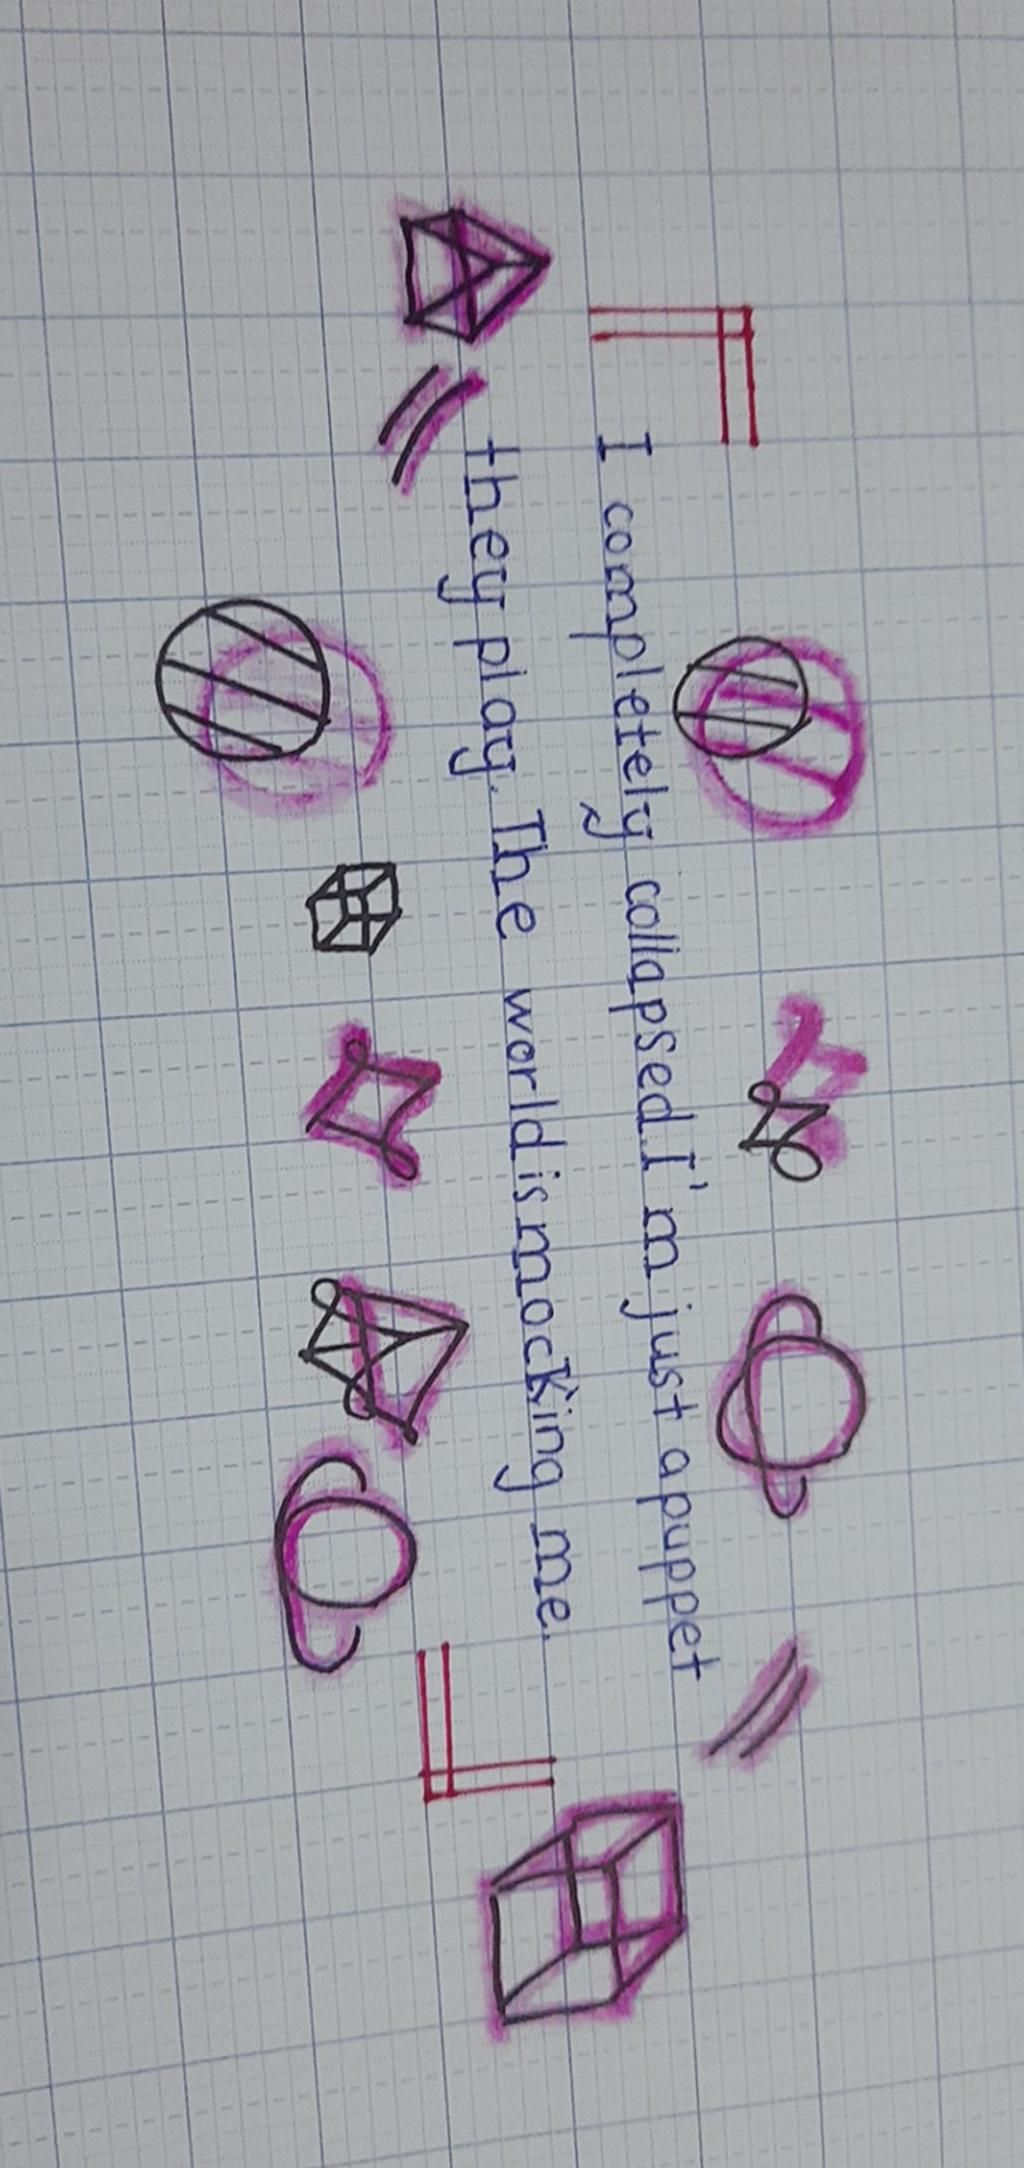 I completely collapsed I'm just a puppet
they play. The world is mocking me.